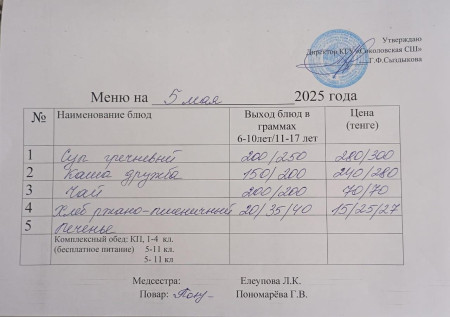 Утверждаю
Директор КГУ «Соколовская СШ»
Г.Ф.Сыздыкова
Меню на 5 мая 2025 года
№ Наименование блюд Выход блюд в граммах 6-10лет/11-17 лет Цена (тенге)
1 Суп гречневый 200/250 280/300
2 Каша дружба 150/200 240/280
3 Чай 200/200 70/70
4 Хлеб ржано-пшеничный 20/35/40 15/25/27
5 печенье
Комплексный обед: КП, 1-4 кл.
(бесплатное питание) 5-11 кл.
5- 11 кл
Медсестра: Елеупова Л.К.
Повар: Пономарёва Г.В.